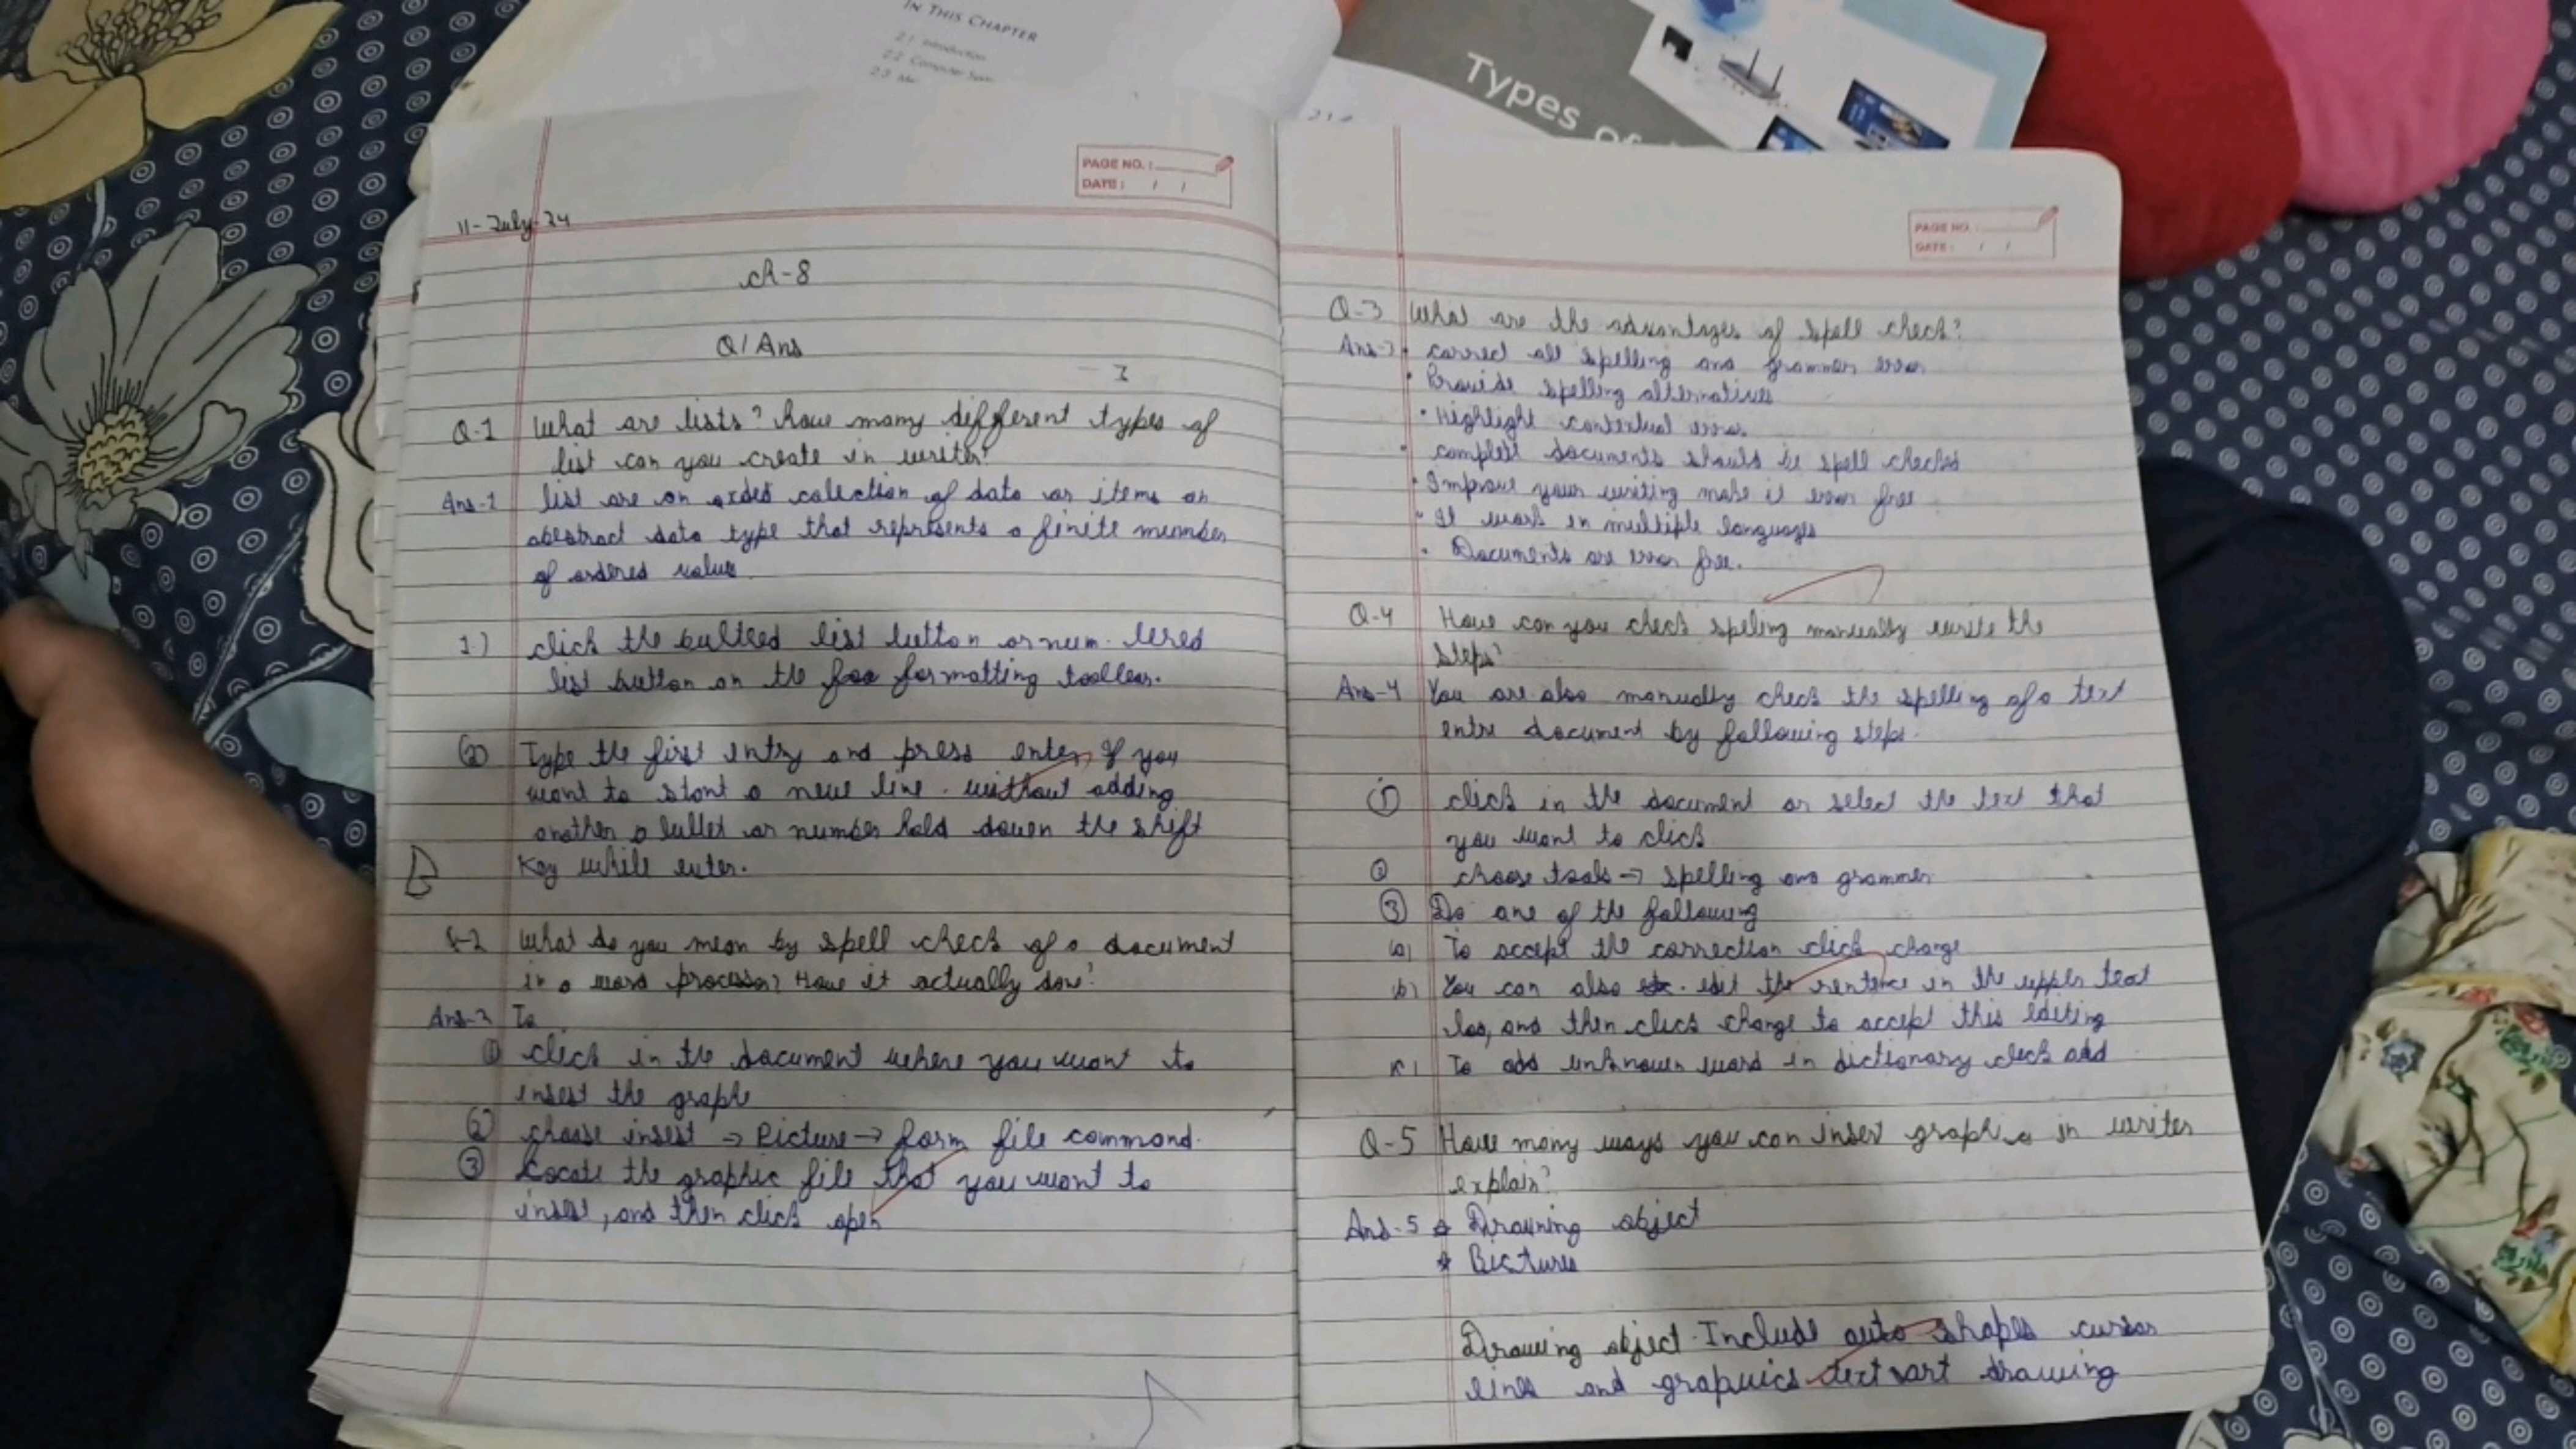 IN THIS CHAPTER
2.1 Introduction
2.2 Computer
2.3
Types of
PAGE NO.:
DATE: / /
11-July-24
ch-8
Q/Ans
Q-1 What are lists? how many different types of
list can you create in writer?
Ans-1 list are an orded colection of data or items an
abestract data type that represents a finite number
of ordered value.
1.) click the bulteed list button or num. bered
list button on the formatting toolbar.
(2) Type the first entry and press enter, If you
want to start a new line. without adding
another a bullet or number hold down the shift
Key while enter.
Q-2 What do you mean by spell check of a document
in a word processor? How it actually done?
Ans-2 To
(1) click in the document where you want to
insert the graph
(2) choose insert → Picture → form file command.
(3) Locate the graphic file that you want to
insert, and then click open
PAGE NO.:
DATE: / /
Q-3 What are the advantages of spell check?
Ans-3 • correct all spelling and grammer error
• Provide spelling alternatives
• Highlight contextual error
• complete documents should be spell checked
• Improve your writing make it error free
• It work in multiple languages
• Documents are error free.
Q-4 How can you check speling manually write the
steps?
Ans-4 You are also manually check the spelling of a text
entre document by following steps.
(1) click in the document or select the text that
you want to click
(2) choose tools → spelling and grammer
(3) Do one of the following
(a) To accept the correction click change
(b) You can also edit the sentence in the upper text
box, and then click change to accept this editing
(c) To add unknown word in dictionary click add
Q-5 How many ways you can insert graphic in writer
explain?
Ans-5 Drawing object
Pictures
Drawing object Include auto shapes curses
lines and graphics text art drawing